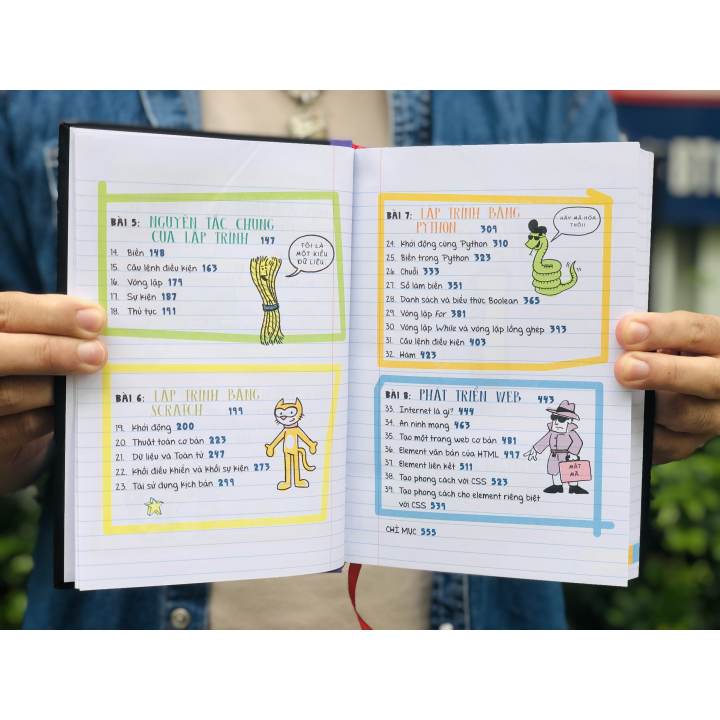 BÀI 5: NGUYÊN TẮC CHUNG
CỦA LẬP TRÌNH 147
14. Biến 148
15. Câu lệnh điều kiện 163
16. Vòng lặp 179
17. Sự kiện 187
18. Thủ tục 191
TÔI LÀ
MỘT KIỂU
DỮ LIỆU.
BÀI 6: LẬP TRÌNH BẰNG
SCRATCH 199
19. Khởi động 200
20. Thuật toán cơ bản 223
21. Dữ liệu và Toán tử 247
22. Khối điều khiển và khối sự kiện 273
23. Tái sử dụng kịch bản 299
BÀI 7: LẬP TRÌNH BẰNG
PYTHON 309
24. Khởi động cùng Python 310
25. Biến trong Python 323
26. Chuỗi 333
27. Số làm biến 351
28. Danh sách và biểu thức Boolean 365
29. Vòng lặp For 381
30. Vòng lặp While và vòng lặp lồng ghép 393
31. Câu lệnh điều kiện 403
32. Hàm 423
HÃY MÃ HÓA
THÔI!
BÀI 8: PHÁT TRIỂN WEB 443
33. Internet là gì? 444
34. An ninh mạng 463
35. Tạo một trang web cơ bản 481
36. Element văn bản của HTML 497
37. Element liên kết 511
38. Tạo phong cách với CSS 523
39. Tạo phong cách cho element riêng biệt
với CSS 539
MẬT
MÃ
CHỈ MỤC 555